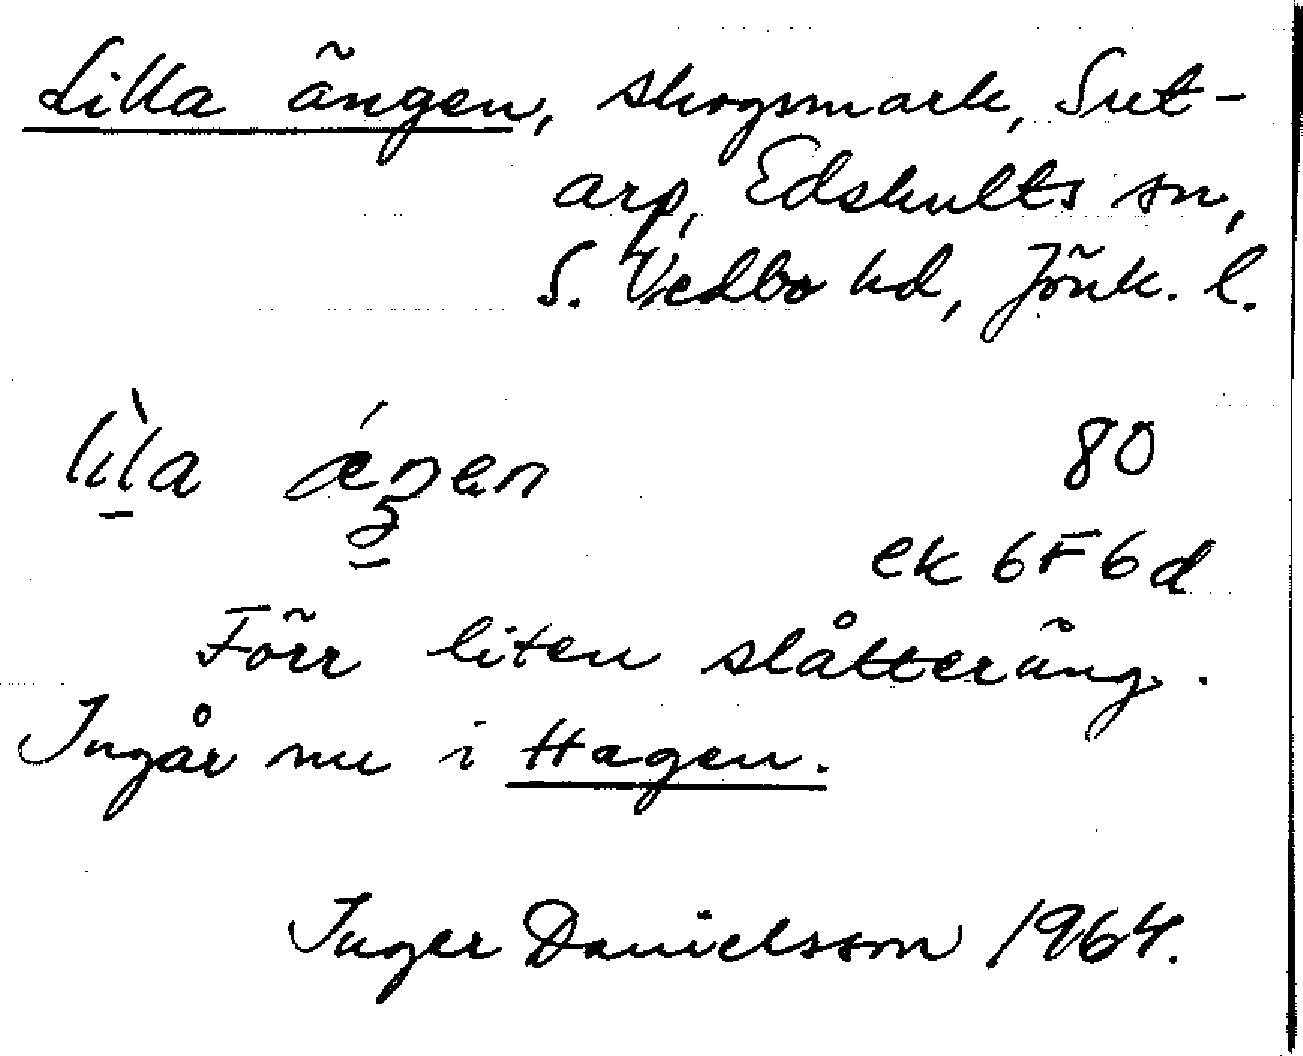 Lilla ängen, skogsmark, Sut-
arp, Edshults sn,
S. Vedbo hd, Jönk. l.
lìla ǽŋen
80
ek 6F6d
Förr liten slåtteräng.
Ingår nu i Hagen.
Inger Danielsson 1964.